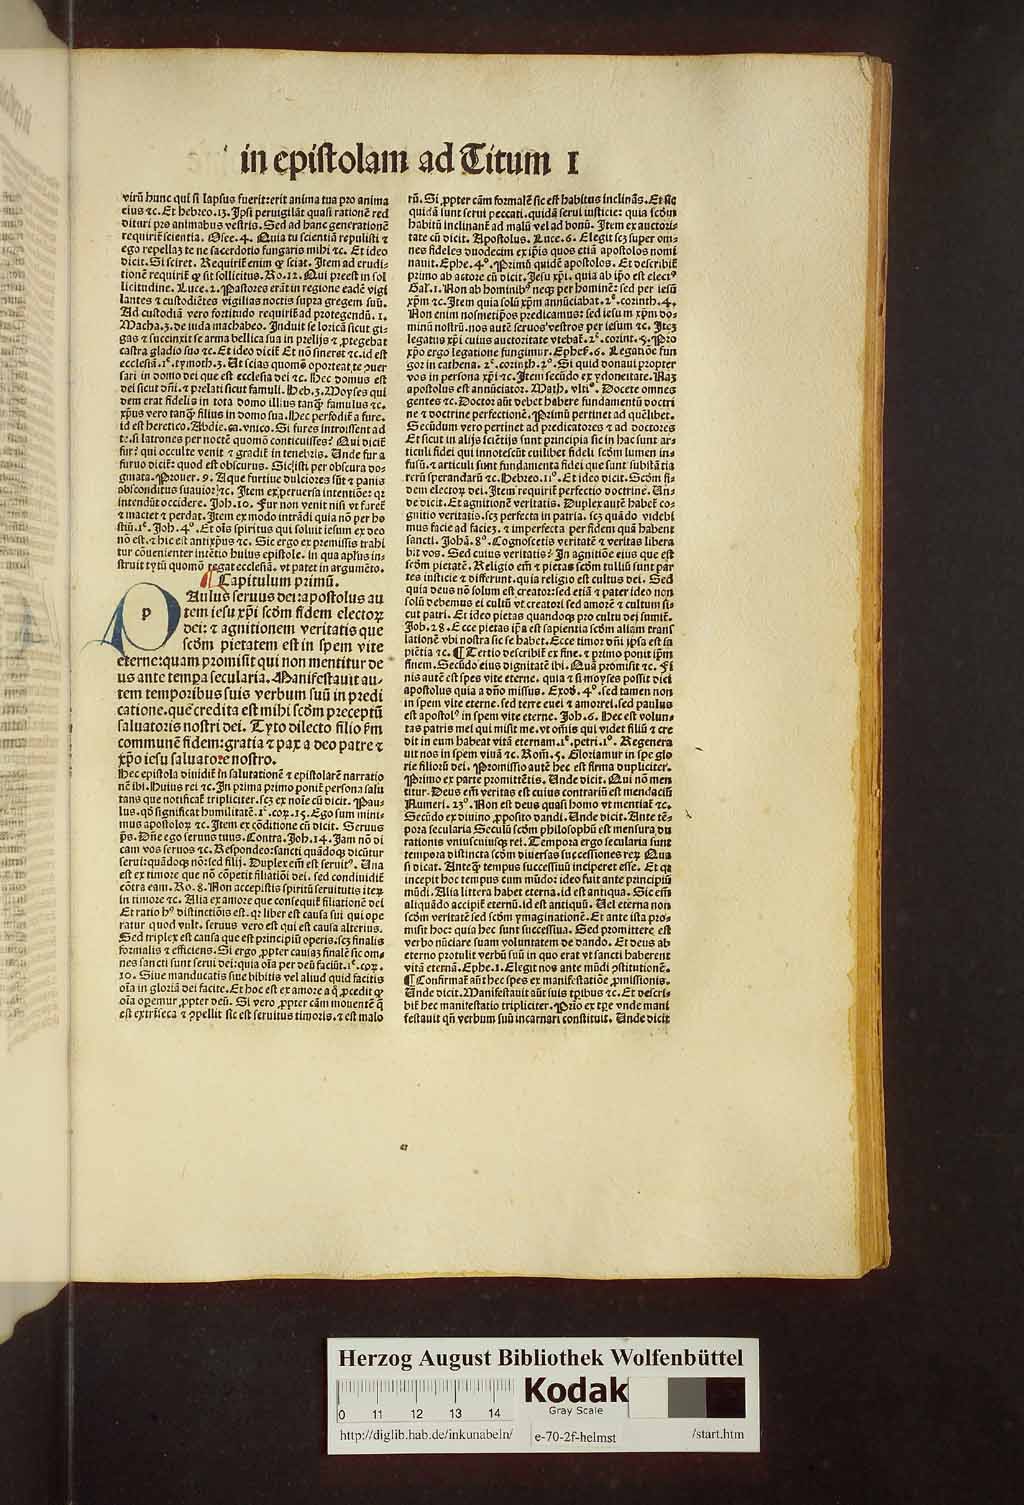 in epistolam ad Titum I
virū hunc qui si lapsus fuerit: erit anima tua pro anima
eius ⁊c. Et hebreo. 13. Ipsi peruigilāt quasi rationē red
dituri pro animabus vestris. Sed ad hanc generationē
requirit̄ scientia. Osee. 4. Quia tu scientiā repulisti ⁊
ego repellaȝ te ne sacerdotio fungaris mihi ⁊c. Et ideo
dicit. Si sciret. Requirit̄ enim ꝙ sciat. Item ad erudi-
tionē requirit̄ ꝙ sit sollicitus. Ro. 12. Qui preest in sol
licitudine. Luce. 2. Pastores erāt in regione eadē vigi
lantes ⁊ custodiētes vigilias noctis supra gregem suū.
Ad custodiā vero fortitudo requirit̄ ad protegendū. 1.
Macha. 3. de iuda machabeo. Induit se loricā sicut gi-
gas ⁊ succinxit se arma bellica sua in prelijs ⁊ ꝓtegebat
castra gladio suo ⁊c. Et ideo dicit̄ Et nō sineret ⁊c. id est
ecclesiā. 1ᵉ. tymoth. 3. Ut scias quomō oporteat te ꝯuer
sari in domo dei que est ecclesia dei ⁊c. Hec domus est
dei sicut dn̄i. ⁊ prelati sicut famuli. Heb. 3. Moyses qui
dem erat fidelis in tota domo illius tanqȝ famulus ⁊c.
xp̄us vero tanqȝ filius in domo sua. Hec perfodit̄ a fure.
id est heretico. Abdie. ca. vnico. Si fures introissent ad
te. si latrones per noctē quomō conticuisses? Qui dicit̄
fur? qui occulte venit ⁊ gradit̄ in tenebris. Unde fur a
furuo dicit̄: quod est obscurus. Sic isti per obscura do-
gmata. Prouer. 9. Aque furtiue dulciores sūt ⁊ panis
absconditus suauior ⁊c. Item ex peruersa intentiōe: qꝛ
intendūt occidere. Joh. 10. Fur non venit nisi vt furet̄
⁊ mactet ⁊ perdat. Item ex modo intrādi quia nō per ho
stiū. 1ᵉ. Joh. 4ᵒ. Et oīs spiritus qui soluit iesum ex deo
nō est. ⁊ hic est antixp̄us ⁊c. Sic ergo ex premissis trahi
tur cōuenienter intētio huius epistole. in qua apl̄us in-
struit tytū quomō regat ecclesiā. vt patet in argumēto.
¶ Capitulum primū.
p
Aulus seruus dei: apostolus au
tem iesu xp̄i scd̄m fidem electoꝝ
dei: ⁊ agnitionem veritatis que
scd̄m pietatem est in spem vite
eterne: quam promisit qui non mentitur de
us ante tempa secularia. Manifestauit au-
tem temporibus suis verbum suū in predi
catione. que credita est mihi scd̄m preceptū
saluatoris nostri dei. Tyto dilecto filio scd̄m
communē fidem: gratia ⁊ pax a deo patre ⁊
xp̄o iesu saluatore nostro.
Hec epistola diuidit̄ in salutationē ⁊ epistolarē narratio
nē ibi. Huius rei ⁊c. In prima primo ponit̄ persona salu
tans que notificat̄ tripliciter. scȝ ex noīe cū dicit. Pau-
lus. qd̓ significat humilitatē. 1ᵉ. coꝝ. 15. Ego sum mini-
mus apostoloꝝ ⁊c. Item ex cōditione cū dicit. Seruus
p̄s. Dn̄e ego seruus tuus. Contra. Joh. 14. Jam nō di
cam vos seruos ⁊c. Respondeo: sancti quādoqȝ dicūtur
serui: quādoqȝ nō: sed filij. Duplex em̄ est seruitꝰ. Una
est ex timore que nō cōpetit filiatiōi dei. sed condiuidit̄
cōtra eam. Ro. 8. Non accepistis spiritū seruitutis iteꝝ
in timore ⁊c. Alia ex amore que consequit̄ filiationē dei
Et ratio hꝰ distinctiōis est. qꝛ liber est causa sui qui ope
ratur quod vult. seruus vero est qui est causa alterius.
Sed triplex est causa que est principiū operis. scȝ finalis
formalis ⁊ efficiens. Si ergo ꝓpter causaȝ finalē sic om-
nes sancti sunt serui dei: quia oīa per deū faciūt. 1ᵉ. coꝝ.
10. Siue manducatis siue bibitis vel aliud quid facitis
oīa in gloriā dei facite. Et hoc est ex amore a quo ꝓcedit ꝙ
oīa operemur ꝓpter deū. Si vero ꝓpter cām mouentē que
est extrīseca ⁊ ꝯpellit sic est seruitus timoris. ⁊ est malo
rū. Si ꝓpter cām formalē sic est habitus inclinās. Et sic
quidā sunt serui peccati. quidā serui iusticie: quia scd̄m
habitū inclinant̄ ad malū vel ad bonū. Item ex auctori-
tate cū dicit. Apostolus. Luce. 6. Elegit scȝ super om-
nes fideles duodecim ex ip̄is quos etiā apostolos nomi
nauit. Ephe. 4ᵒ. Primū quidē apostolos. Et describit̄
primo ab actore cū dicit. Jesu xp̄i. quia ab ip̄o est electꝰ
Gal. 1. Non ab hominibꝰ neqȝ per hominē: sed per iesū
xp̄m ⁊c. Item quia solū xp̄m annūciabat. 2ᵉ. corinth. 4.
Non enim nosmetip̄os predicamus: sed iesum xp̄m do-
minū nostrū. nos autē seruos vestros per iesum ⁊c. Iteȝ
legatus xp̄i cuius auctoritate vtebat̄. 2ᵉ. corint. 5. Pro
xp̄o ergo legatione fungimur. Ephes̄. 6. Legatiōe fun
gor in cathena. 2ᵉ. corinth. 2ᵒ. Si quid donaui propter
vos in persona xp̄i ⁊c. Item secūdo ex ydoneitate. Naȝ
apostolus est annūciator. Math. vltiᵒ. Docete omnes
gentes ⁊c. Doctor aūt debet habere fundamentū doctri
ne ⁊ doctrine perfectionē. Primū pertinet ad quēlibet.
Secūdum vero pertinet ad predicatores ⁊ ad doctores
Et sicut in alijs sciētijs sunt principia sic in hac sunt ar-
ticuli fidei qui innotescūt cuilibet fideli scd̄m lumen in-
fusū. ⁊ articuli sunt fundamenta fidei que sunt substātia
rerū sperandarū ⁊c. Hebreo. 11ᵒ. Et ideo dicit. Scd̄m fi-
dem electoꝝ dei. Item requirit̄ perfectio doctrine. Un-
de dicit. Et agnitionē veritatis. Duplex autē habet̄ co-
gnitio veritatis. scȝ perfecta in patria. scȝ quādo videbi
mus facie ad facieȝ. ⁊ imperfecta per fidem quā habent
sancti. Johā. 8ᵒ. Cognoscetis veritatē ⁊ veritas libera
bit vos. Sed cuius veritatis? In agnitiōe eius que est
scd̄m pietatē. Religio em̄ ⁊ pietas scd̄m tulliū sunt par
tes iusticie ⁊ differunt. quia religio est cultus dei. Sed
quia deus nō solum est creator: sed etiā ⁊ pater ideo non
solū debemus ei cultū vt creatori sed amorē ⁊ cultum si-
cut patri. Et ideo pietas quandoqȝ pro cultu dei sumit̄.
Job. 28. Ecce pietas ip̄a est sapientia scd̄m aliam trans
lationē vbi nostra sic se habet. Ecce timor dn̄i ip̄sa est sa
piētia ⁊c. ¶ Tertio describit̄ ex fine. ⁊ primo ponit ip̄m
finem. Secūdo eius dignitatē ibi. Quā promisit ⁊c. Fi
nis autē est spes vite eterne. quia ⁊ si moyses possit dici
apostolus quia a dn̄o missus. Exod. 4ᵒ. sed tamen non
in spem vite eterne. sed terre euei ⁊ amorrei. sed paulus
est apostolꝰ in spem vite eterne. Joh. 6. Hec est volun-
tas patris mei qui misit me. vt omīs qui videt filiū ⁊ cre
dit in eum habeat vitā eternam. 1ᵉ. petri. 1ᵒ. Regenera
uit nos in spem viuā ⁊c. Rom̄. 5. Gloriamur in spe glo
rie filioꝝ dei. Promissio autē hec est firma dupliciter.
Primo ex parte promittētis. Unde dicit. Qui nō men
titur. Deus em̄ veritas est cuius contrariū est mendaciū
Numeri. 23ᵒ. Non est deus quasi homo vt mentiat̄ ⁊c.
Secūdo ex diuino ꝓposito dandi. Unde dicit. Ante tē-
pora secularia Seculū scd̄m philosophū est mensura du
rationis vniuscuiusqȝ rei. Tempora ergo secularia sunt
tempora distincta scd̄m diuersas successiones reꝝ Qua
si dicat. Anteqȝ tempus successiuū inciperet esse. Et qꝛ
incepit hoc tempus cum mūdo: ideo fuit ante principiū
mūdi. Alia littera habet eterna. id est antiqua. Sic em̄
aliquādo accipit̄ eternū. id est antiquū. Uel eterna non
scd̄m veritatē sed scd̄m ymaginationē. Et ante ista pro-
misit hoc: quia hec sunt successiua. Sed promittere est
verbo nūciare suam voluntatem de dando. Et deus ab
eterno protulit verbū suū in quo erat vt sancti haberent
vitā eternā. Ephe. 1. Elegit nos ante mūdi ꝯstitutionē.
¶ Confirmat̄ aūt hec spes ex manifestatiōe ꝓmissionis.
Unde dicit. Manifestauit aūt suis tpibus ⁊c. Et descri-
bit̄ hec manifestatio tripliciter. Prīo ex tpe vnde mani
festauit qn̄ verbum suū incarnari constituit. Unde dicit
Herzog August Bibliothek Wolfenbüttel
Kodak
Gray Scale
0 11 12 13 14
http://diglib.hab.de/inkunabeln/ e-70-2f-helmst /start.htm